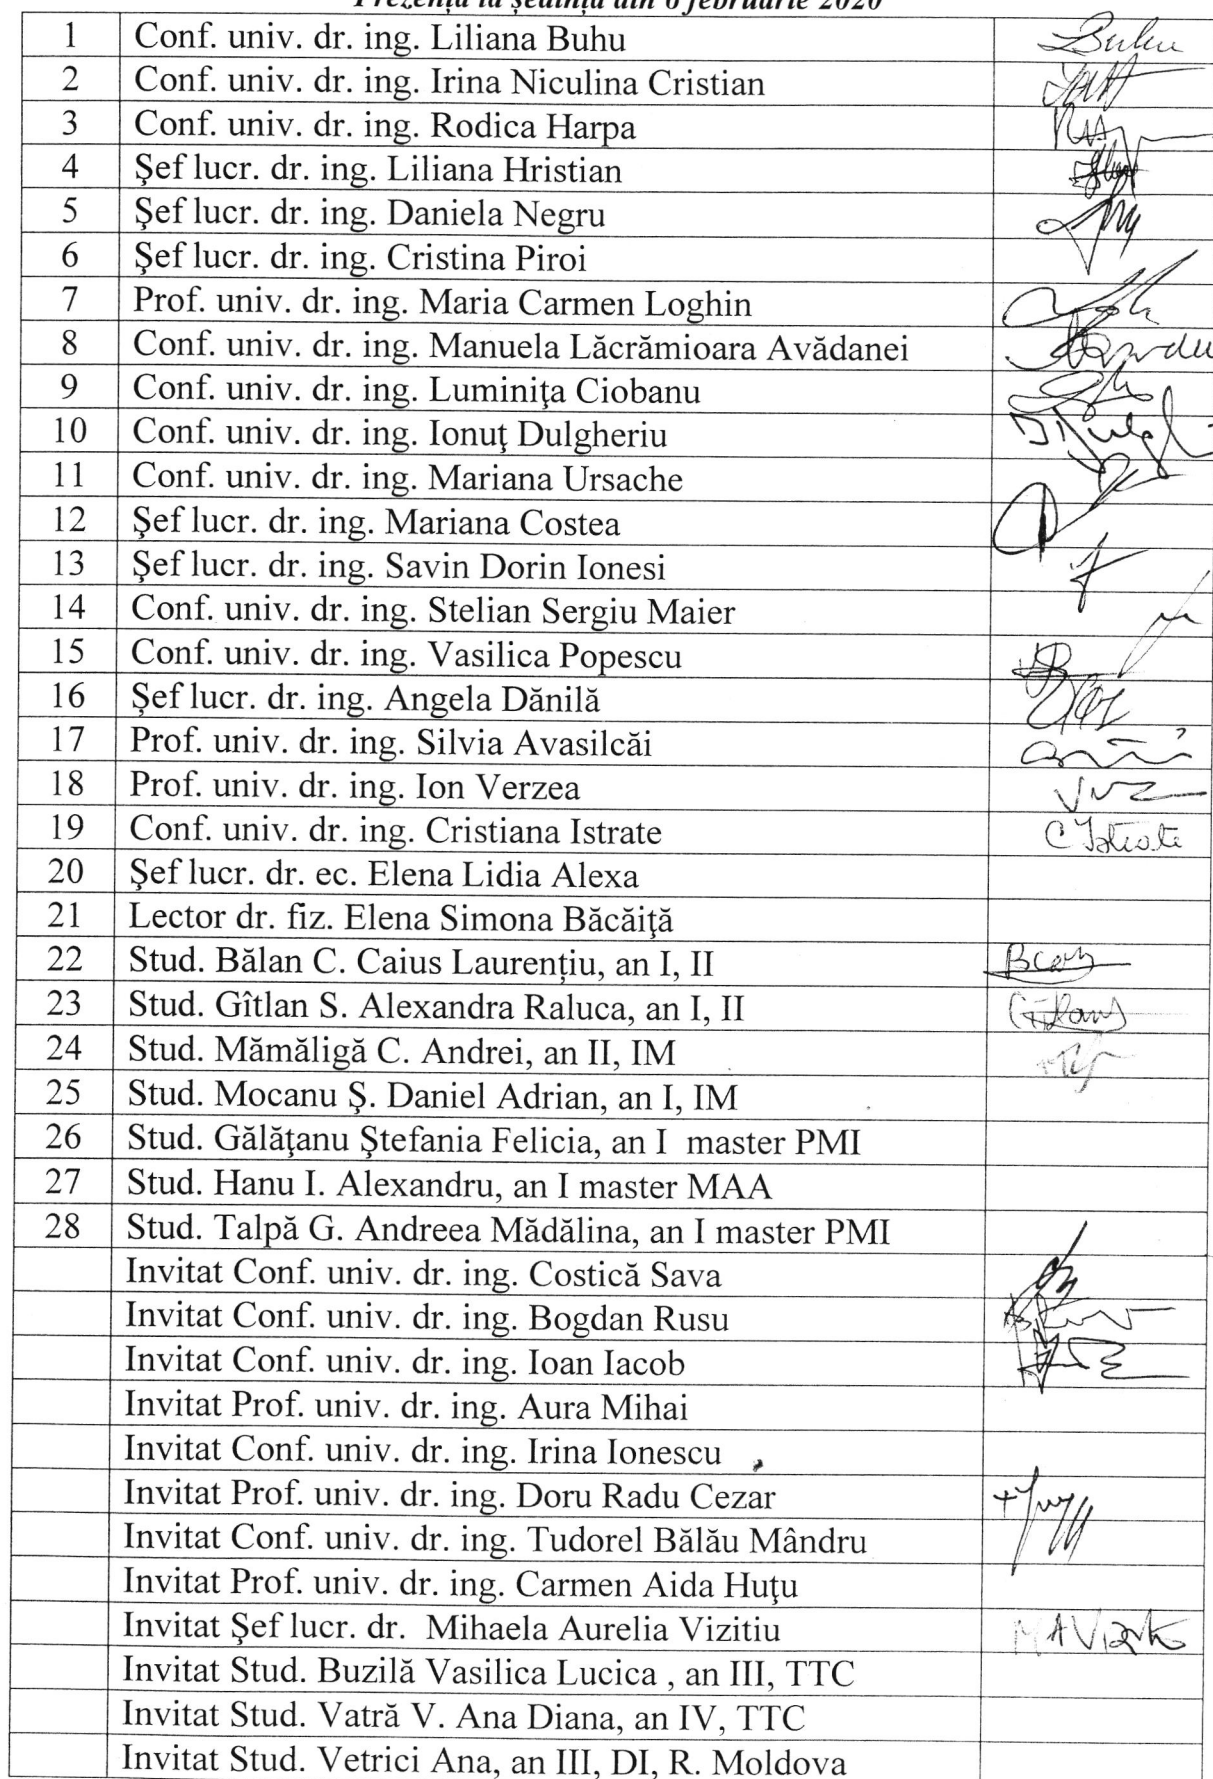 Prezența la ședința din 6 februarie 2020
1 Conf. univ. dr. ing. Liliana Buhu Buhu
2 Conf. univ. dr. ing. Irina Niculina Cristian
3 Conf. univ. dr. ing. Rodica Harpa
4 Şef lucr. dr. ing. Liliana Hristian
5 Şef lucr. dr. ing. Daniela Negru
6 Şef lucr. dr. ing. Cristina Piroi
7 Prof. univ. dr. ing. Maria Carmen Loghin
8 Conf. univ. dr. ing. Manuela Lăcrămioara Avădanei
9 Conf. univ. dr. ing. Luminiţa Ciobanu
10 Conf. univ. dr. ing. Ionuţ Dulgheriu
11 Conf. univ. dr. ing. Mariana Ursache
12 Şef lucr. dr. ing. Mariana Costea
13 Şef lucr. dr. ing. Savin Dorin Ionesi
14 Conf. univ. dr. ing. Stelian Sergiu Maier
15 Conf. univ. dr. ing. Vasilica Popescu
16 Şef lucr. dr. ing. Angela Dănilă
17 Prof. univ. dr. ing. Silvia Avasilcăi
18 Prof. univ. dr. ing. Ion Verzea
19 Conf. univ. dr. ing. Cristiana Istrate C Istrate
20 Şef lucr. dr. ec. Elena Lidia Alexa
21 Lector dr. fiz. Elena Simona Băcăiţă
22 Stud. Bălan C. Caius Laurențiu, an I, II
23 Stud. Gîtlan S. Alexandra Raluca, an I, II
24 Stud. Mămăligă C. Andrei, an II, IM
25 Stud. Mocanu Ş. Daniel Adrian, an I, IM
26 Stud. Gălăţanu Ştefania Felicia, an I master PMI
27 Stud. Hanu I. Alexandru, an I master MAA
28 Stud. Talpă G. Andreea Mădălina, an I master PMI
Invitat Conf. univ. dr. ing. Costică Sava
Invitat Conf. univ. dr. ing. Bogdan Rusu
Invitat Conf. univ. dr. ing. Ioan Iacob
Invitat Prof. univ. dr. ing. Aura Mihai
Invitat Conf. univ. dr. ing. Irina Ionescu
Invitat Prof. univ. dr. ing. Doru Radu Cezar
Invitat Conf. univ. dr. ing. Tudorel Bălău Mândru
Invitat Prof. univ. dr. ing. Carmen Aida Huţu
Invitat Şef lucr. dr. Mihaela Aurelia Vizitiu
Invitat Stud. Buzilă Vasilica Lucica , an III, TTC
Invitat Stud. Vatră V. Ana Diana, an IV, TTC
Invitat Stud. Vetrici Ana, an III, DI, R. Moldova